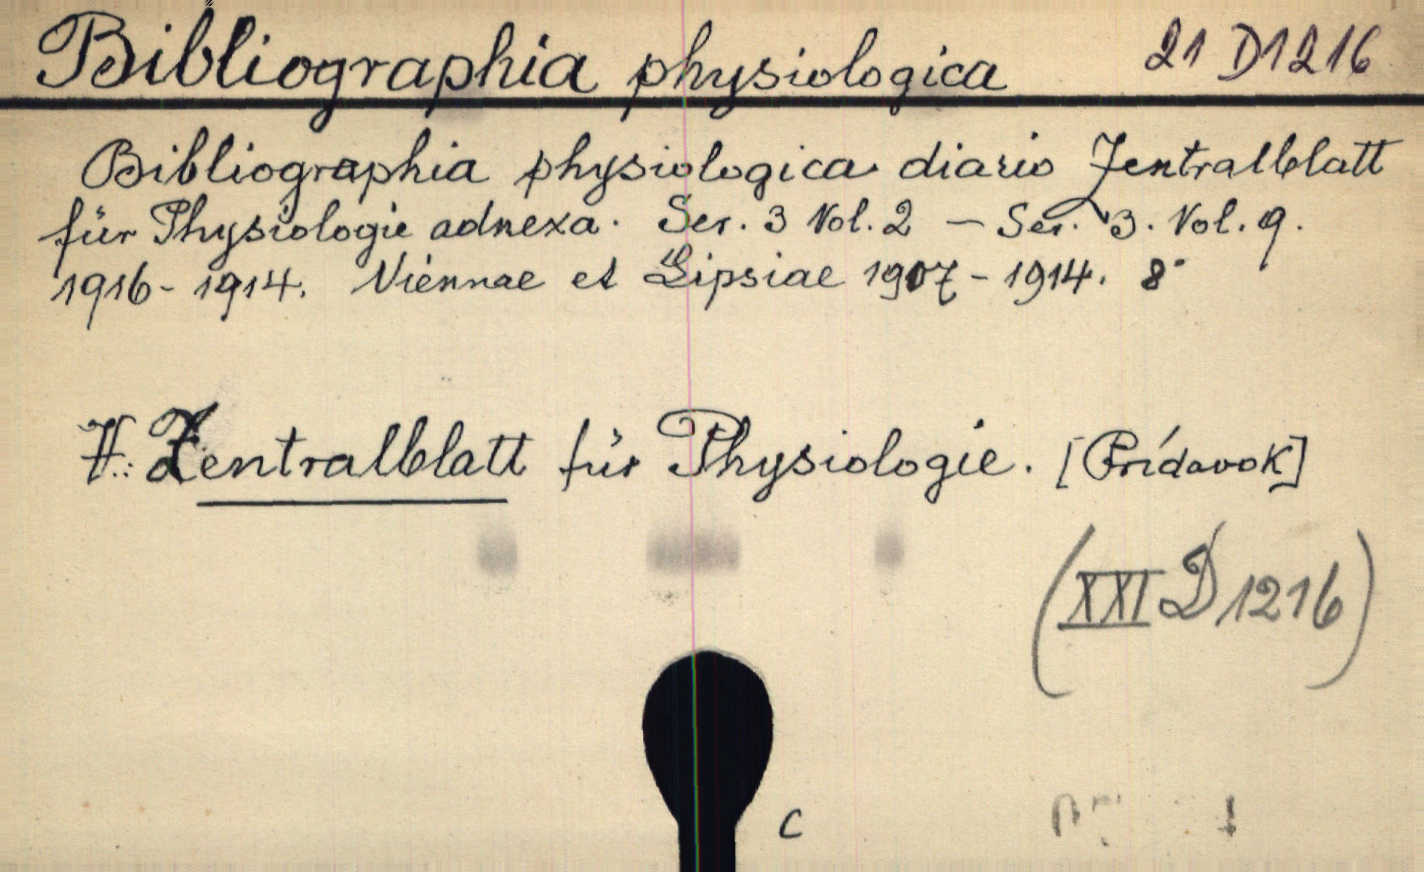 Bibliographia physiologica 21 D1216
Bibliographia physiologica diario Zentralblatt
für Physiologie adnexa. Ser. 3 Vol. 2 — Ser. 3. Vol. 9.
1916 - 1914. Viennae et Lipsiae 1907 - 1914. 8°
V.: Zentralblatt für Physiologie. [Prídavok]
(XXI D 1216)
C